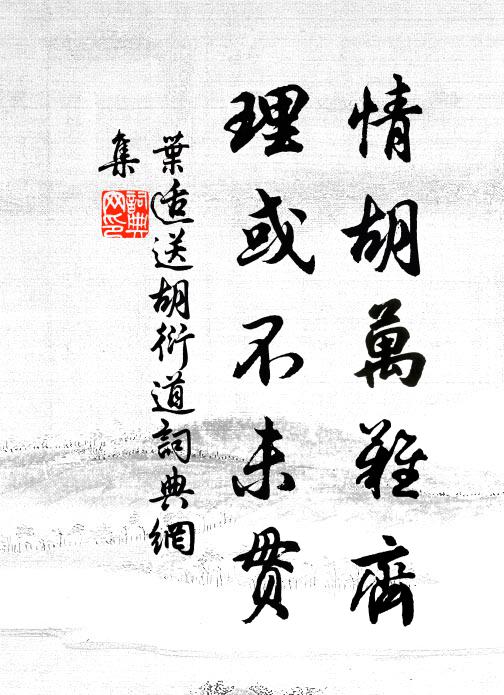 情胡萬難齊
理或不未貫
葉适送胡衍道詞典網
集
詞典
网印